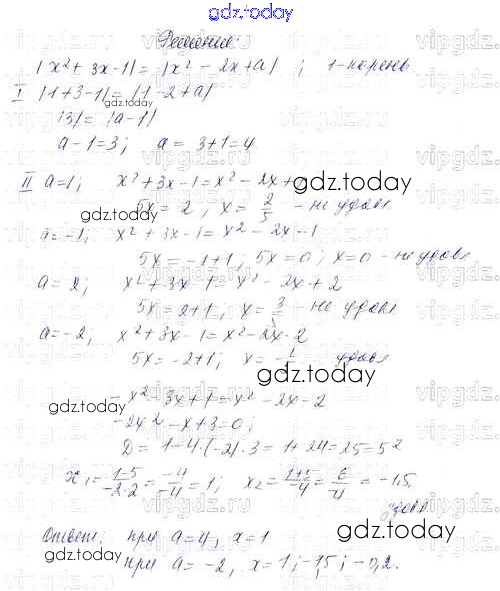 gdz.today
Решение:
|x² + 3x - 1| = |x² - 2x + a| ; 1-корень.
I |1+3-1| = |1-2+a|
gdz.today
|3| = |a-1|
a-1=3; a = 3+1=4
II a=1; x²+3x-1=x²-2x+
gdz.today
5x = 2, x = 2/5 - не удовл
gdz.today
a=-1; x²+3x-1=x²-2x-1
5x = -1+1, 5x=0; x=0 - не удовл
a=2; x²+3x-1=x²-2x+2
5x=2+1; x=3/5 не удовл
gdz.today
a=-2, x²+3x-1=x²-2x-2
5x=-2+1; x=-1 удовл
gdz.today
-x²-3x+1=x²-2x-2
gdz.today
-2x²-x+3=0;
D = 1-4·(-2)·3=1+24=25=5²
x₁=(1-5)/(-2·2)=(-4)/(-4)=1; x₂=(1+5)/(-4)=6/(-4)=-1,5
удовл
Ответ: при a=4, x=1
gdz.today
при a=-2, x=1; -1,5; -0,2.
gdz.today